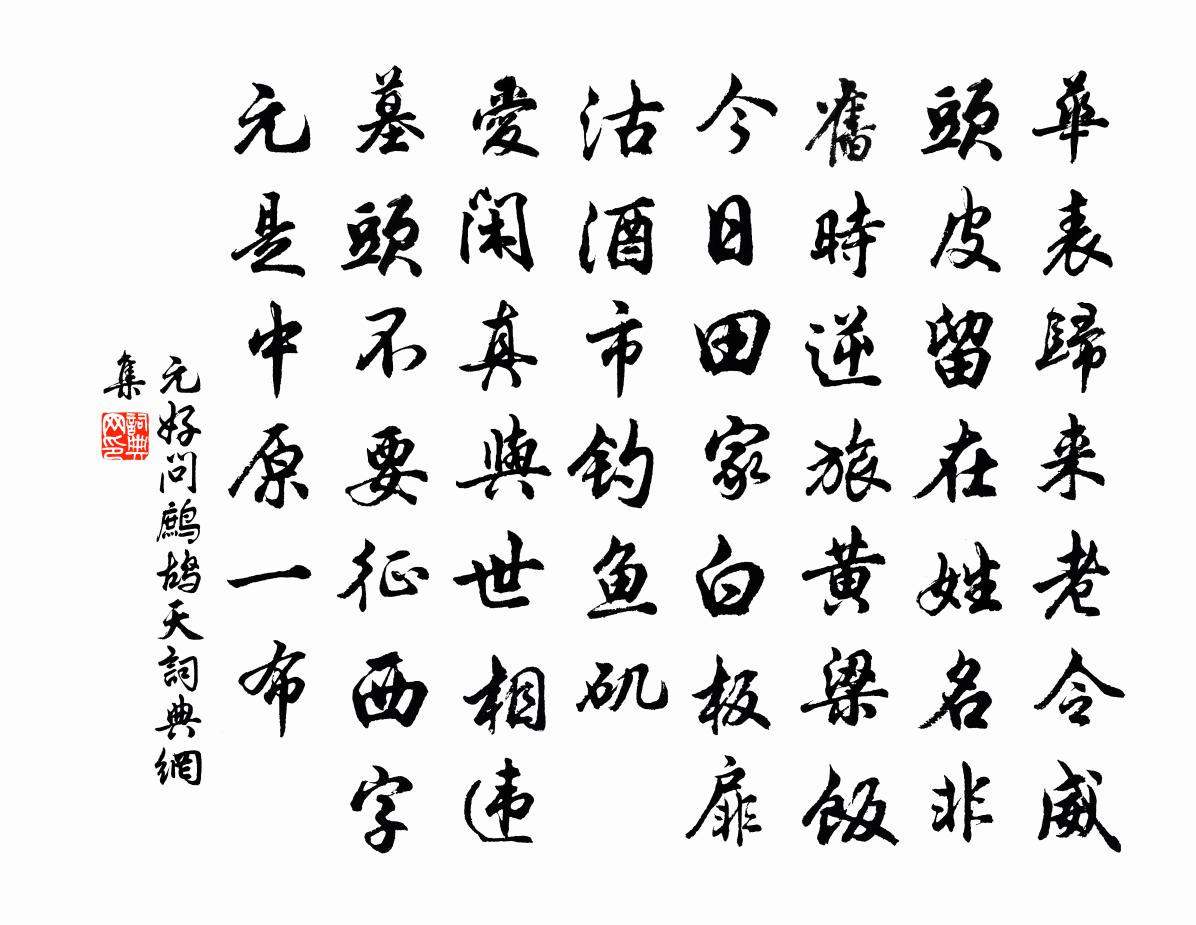 華表歸来老令威
頭皮留在姓名非
舊時逆旅黄粱飯
今日田家白板扉
沽酒市釣魚矶
愛閑真與世相違
墓頭不要征西字
元是中原一布
元好問鷓鴣天詞典網
集
詞典网印